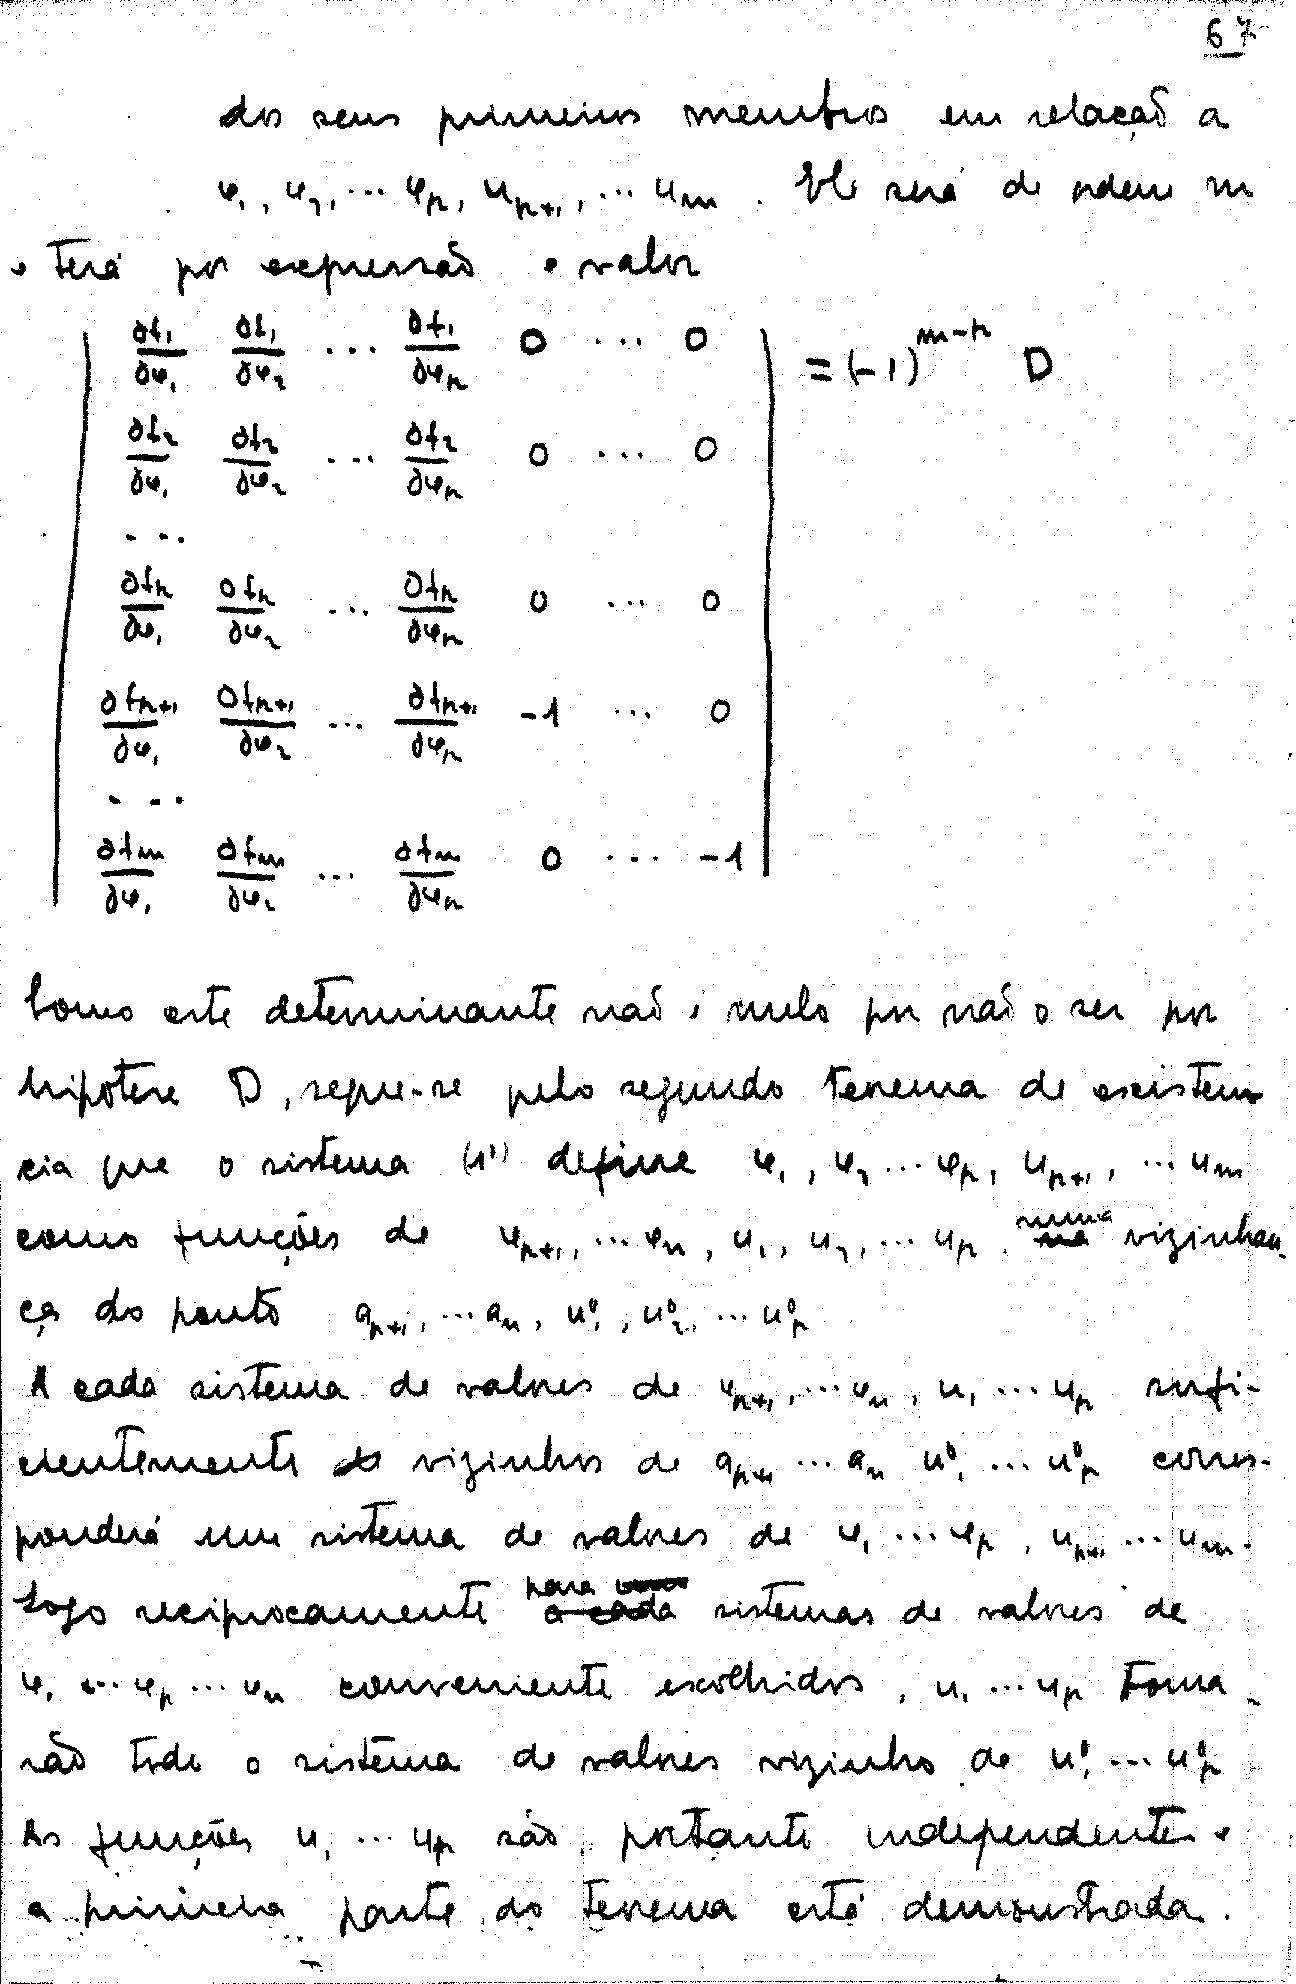 67
dos seus primeiros membros em relação a
φ₁, φ₂, ... φₚ, uₚ₊₁, ... uₘ. Ele será de ordem m
e terá por expressão e valor
| ∂f₁/∂φ₁ ∂f₁/∂φ₂ ... ∂f₁/∂φₚ 0 ... 0 | = (-1)^{m-p} D
∂f₂/∂φ₁ ∂f₂/∂φ₂ ... ∂f₂/∂φₚ 0 ... 0
...
∂fₚ/∂φ₁ ∂fₚ/∂φ₂ ... ∂fₚ/∂φₚ 0 ... 0
∂fₚ₊₁/∂φ₁ ∂fₚ₊₁/∂φ₂ ... ∂fₚ₊₁/∂φₚ -1 ... 0
...
∂fₘ/∂φ₁ ∂fₘ/∂φ₂ ... ∂fₘ/∂φₚ 0 ... -1
Como este determinante não é nulo por não o ser por
hipótese D, segue-se pelo segundo teorema de existen
cia que o sistema define φ₁, φ₂ ... φₚ, uₚ₊₁, ... uₘ
como funções de φₚ₊₁, ... φₙ, u₁, u₂, ... uₚ numa vizinhan-
ça do ponto aₚ₊₁, ... aₙ, u⁰₁, u⁰₂, ... u⁰ₚ
A cada sistema de valores de φₚ₊₁, ... φₙ, u₁ ... uₚ sufi-
cientemente vizinhos de aₚ₊₁ ... aₙ u⁰₁ ... u⁰ₚ corres-
ponderá um sistema de valores de φ₁ ... φₚ, uₚ₊₁ ... uₘ.
Logo reciprocamente para sistemas de valores de
φ₁ ... φₚ ... φₙ convemente escolhidos, u₁ ... uₚ toma-
rão todo o sistema de valores vizinho de u⁰₁ ... u⁰ₚ
As funções u₁ ... uₚ são, portanto independentes e
a primeira parte do teorema está demonstrada.